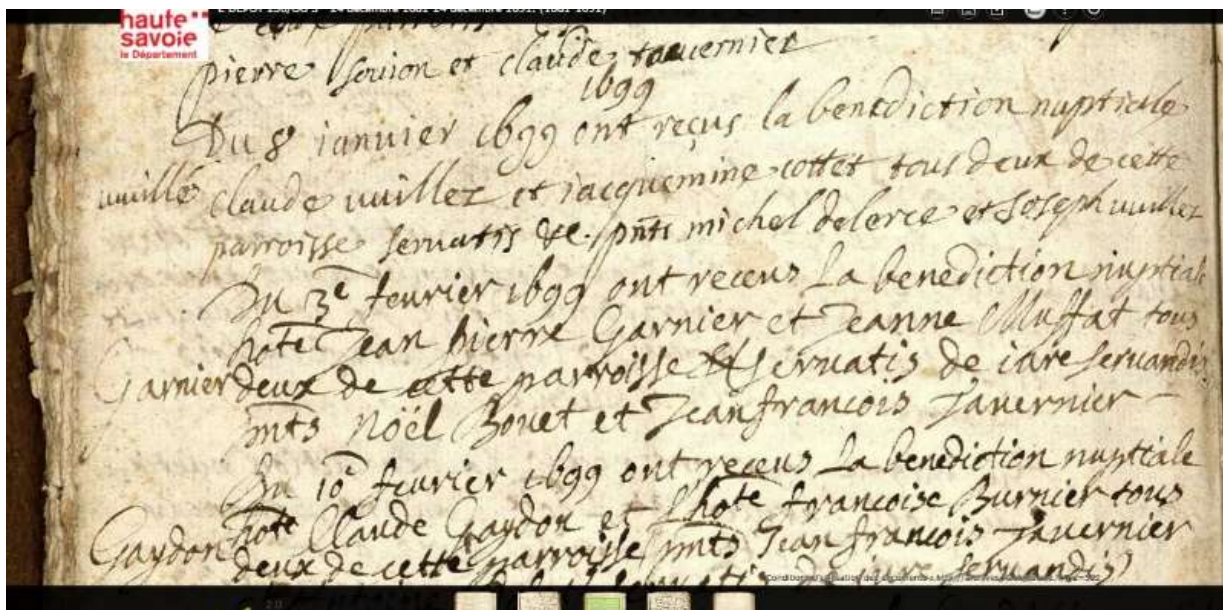 haute
savoie
le Département
pierre et claude tavernier
1699
Du 8 ianuier 1699 ont reçus la benediction nuptiale
vuillé claude vuillez et iacquemine cottet tous deux de cette
parroisse seruatis &c. pnts michel delerce et Joseph vuillez
Du 3e feurier 1699 ont receus La benediction nuptiale
hote Jean pierre Garnier et Jeanne Muffat tous
Garnier deux de cette parroisse seruatis de iure seruandis
pnts Nöel Bouet et Jeanfrancois Tauernier
Du 10 feurier 1699 ont receus La benediction nuptiale
Gaydon hote Claude Gaydon et Lhote francoise Burnier tous
deux de cette parroisse pnts Jean francois Tauernier
seruandis